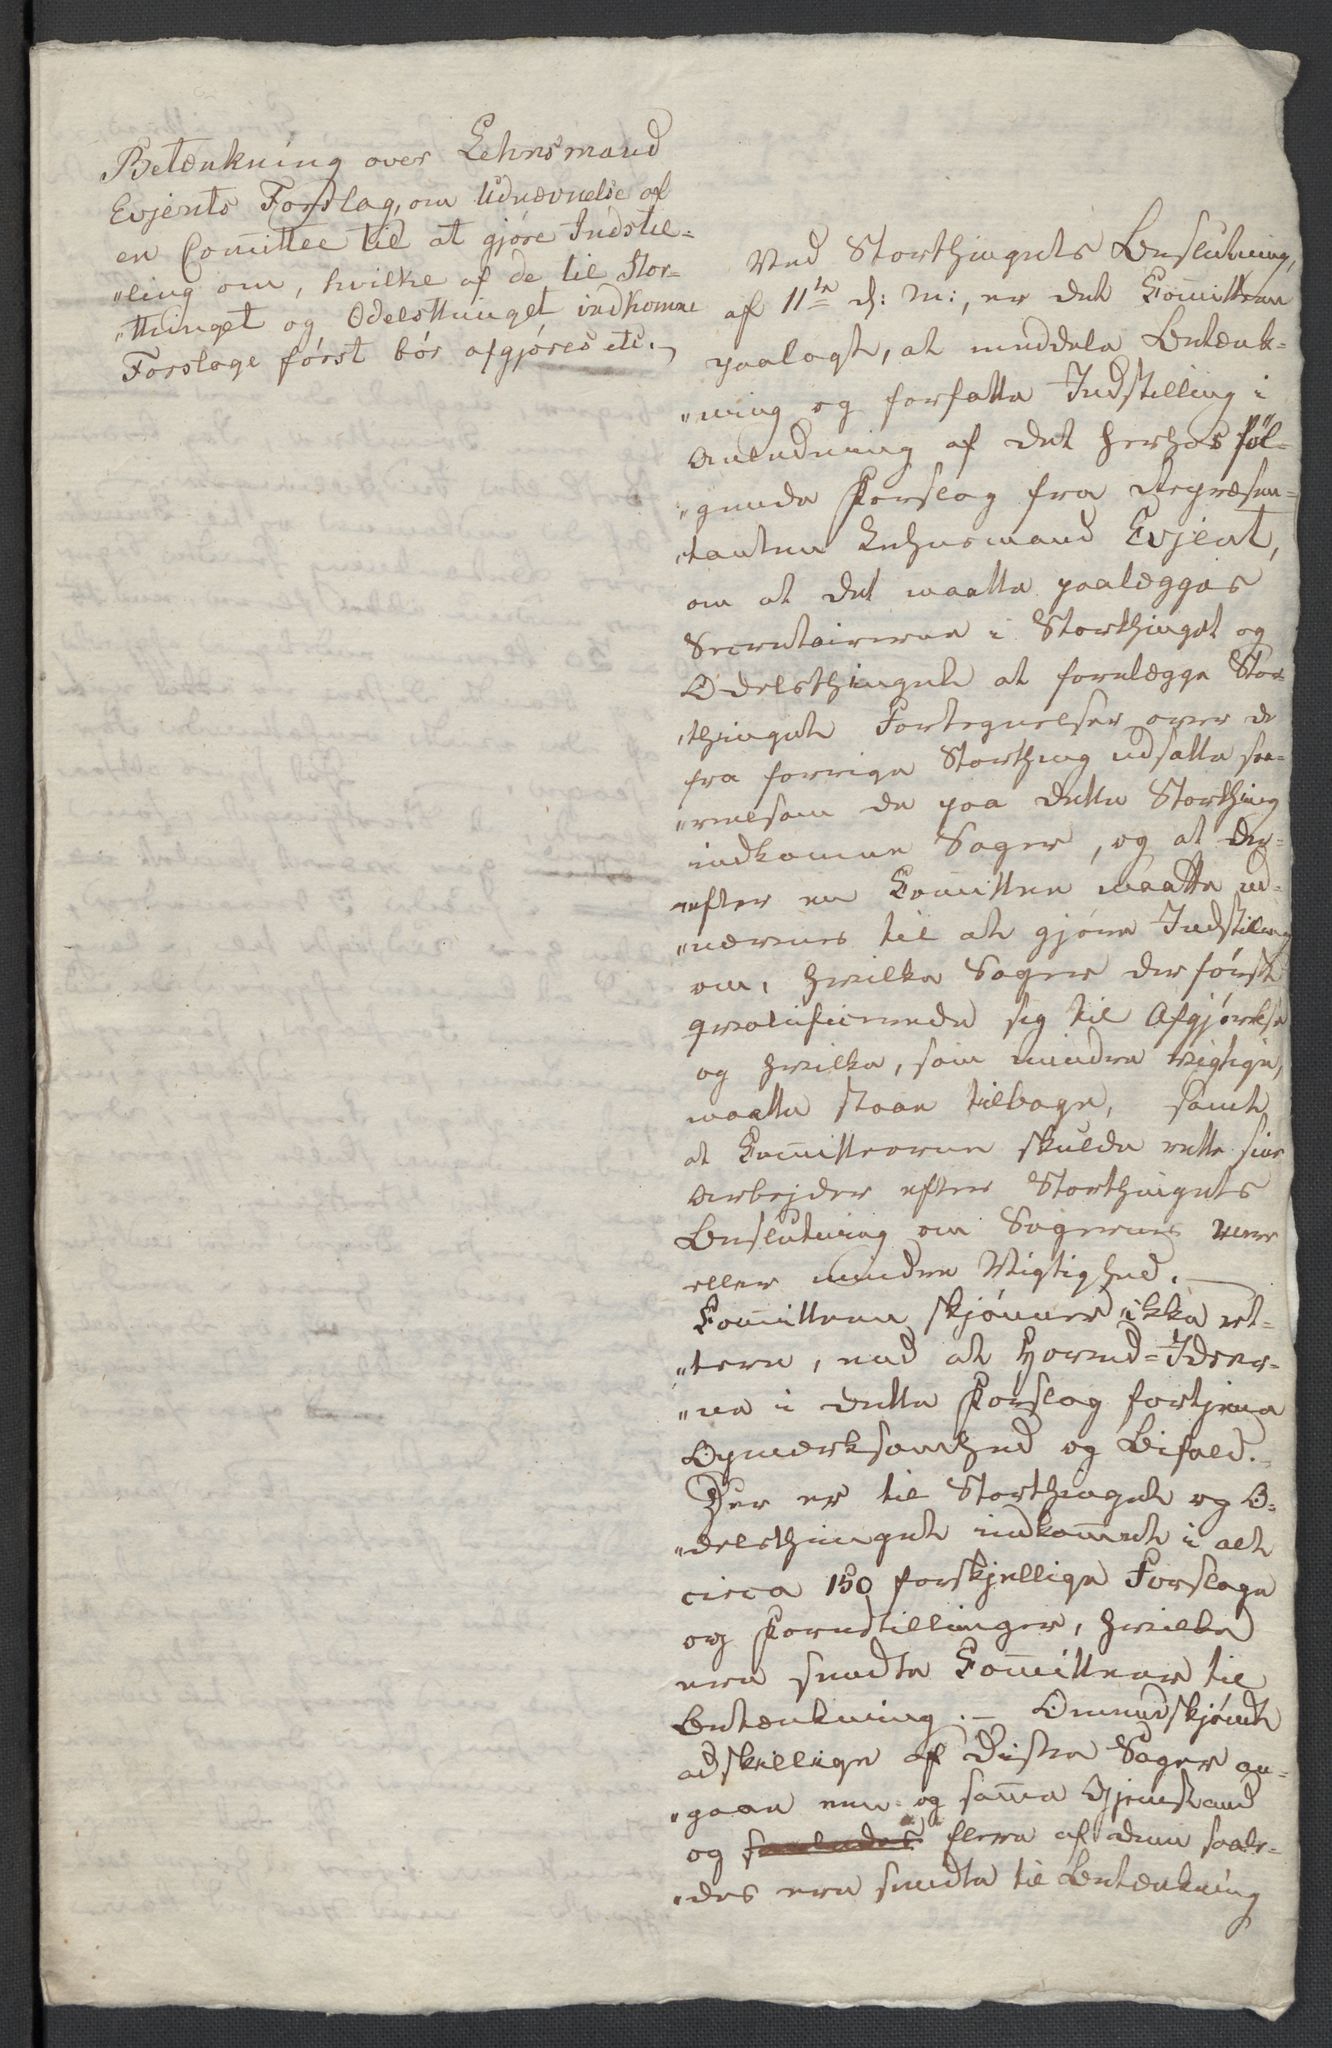 Betænkning over Lehnsmand
Evjents Forslag, om Udnævnelse af
en Comittee til at gjøre Indstil-
"ling om, hvilke af de til Stor-
"thinget og Odelsthinget indkomne
Forslage først bør afgjøres etc.
Ved Storthingets Beslutning,
af 11te d: M:, er det Comitteen
paalagt, at meddele Betænk-
"ning og forfatte Indstilling i
Anledning af det herhos føl-
"gende Forslag fra Repræsen-
tanten Lehnsmand Evjent,
om at det maatte paalægges
Secretairerne i Storthinget og
Odelsthinget at forelægge Stor-
"thinget Fortegnelser over de
fra forrige Storthing udsatte saa-
"velsom de paa dette Storthing
indkomne Sager, og at der-
"efter en Comittee maatte ud-
"nævnes til at gjøre Indstilling
om, hvilke Sager der først
qvalificerede sig til Afgjørelse
og hvilke, som mindre vigtige,
maatte staae tilbage, samt
at Comitteerne skulde rette sine
Arbejder efter Storthingets
Beslutning om Sagernes mere
eller mindre Vigtighed.
Comitteen skjønner ikke ret-
"tere, end at Hoved-Ideer-
"ne i dette Forslag fortjene
Opmærksomhed og Bifald.
Der er til Storthinget og O-
"delsthinget indkommet i alt
circa 150 forskjellige Forslage
og Forestillinger, hvilke
ere sendte Comitteer til
Betænkning. – Omendskjøndt
adskillige af disse Sager an-
"gaae een og samme Gjenstand
og saaledes flere af dem saale-
"des ere sendte til Betænkning